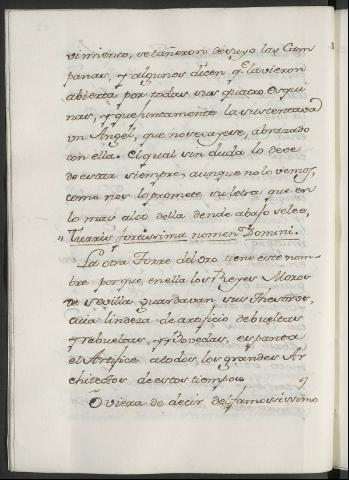 vimiento, se tañeron de suyo las Cam
panas, y algunos dicen q.e la vieron
abierta por todas sus quatro esqui
nas, y que juntamente la sustentava
un Angel, que no se cayese, abrazado
con ella. El qual sin duda lo deve
de estar siempre, aunque no lo vemos,
como nos lo promete su letra que en
lo mas alto della dende abajo se lee,
" Turris fortissima nomen Domini.
La otra Torre del Oro tiene este nom-
bre porque en ella los Reyes Moros
de Sevilla guardavan sus Thesoros,
cuia lindeza de artificio de bueltas
y rebueltas, y Bovedas, espanta
el Artifice a todos los grandes Ar
chitectos de estos tiempos.
Oviera de decir del famosissimo